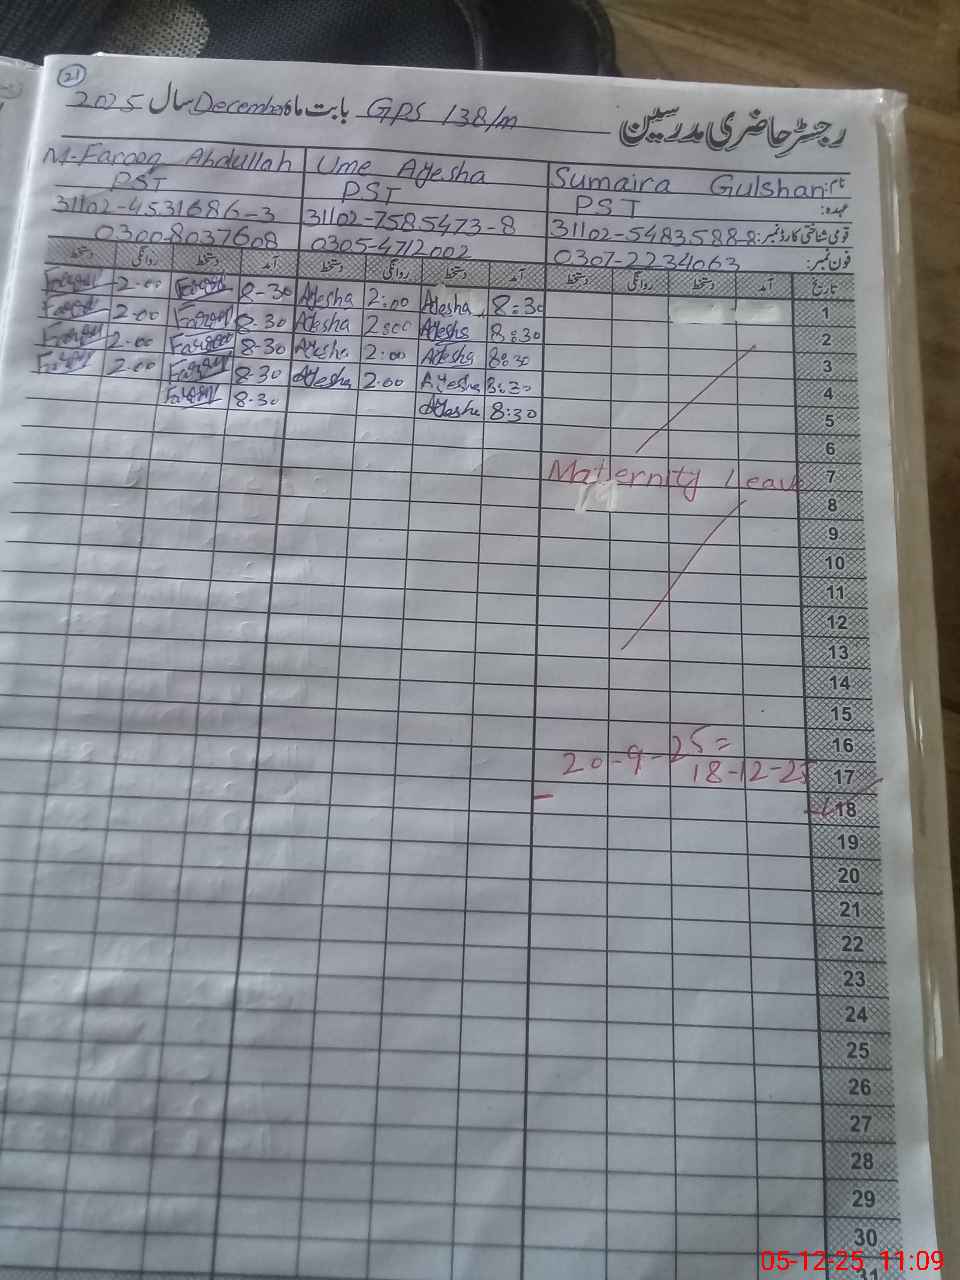 21
رجسٹر حاضری مدرسین GPS 138/m بابت ماہ December سال 2025
نام: Sumaira Gulshan Ume Ayesha M.Farooq Abdullah
عہدہ: PST PST PST
قومی شناختی کارڈ نمبر: 31102-5483588-8 31102-7585473-8 31102-4531686-3
فون نمبر: 0307-2234063 0305-4712002 0300-8037608
تاریخ آمد دستخط روانگی دستخط آمد دستخط روانگی دستخط آمد دستخط روانگی دستخط
1 8:30 Ayesha 2:00 Ayesha 8-30 Farooq 2-00 Farooq
2 8:30 Ayesha 2:00 Ayesha 8-30 Farooq 2-00 Farooq
3 8:30 Ayesha 2:00 Ayesha 8-30 Farooq 2-00 Farooq
4 8:30 Ayesha 2.00 Ayesha 8-30 Farooq 2-00 Farooq
5 8:30 Ayesha 8-30 Farooq
6
7 Maternity Leave
8
9
10
11
12
13
14
15
16 20-9-25=
17 18-12-25
18
19
20
21
22
23
24
25
26
27
28
29
30
31
05-12-25 11:09